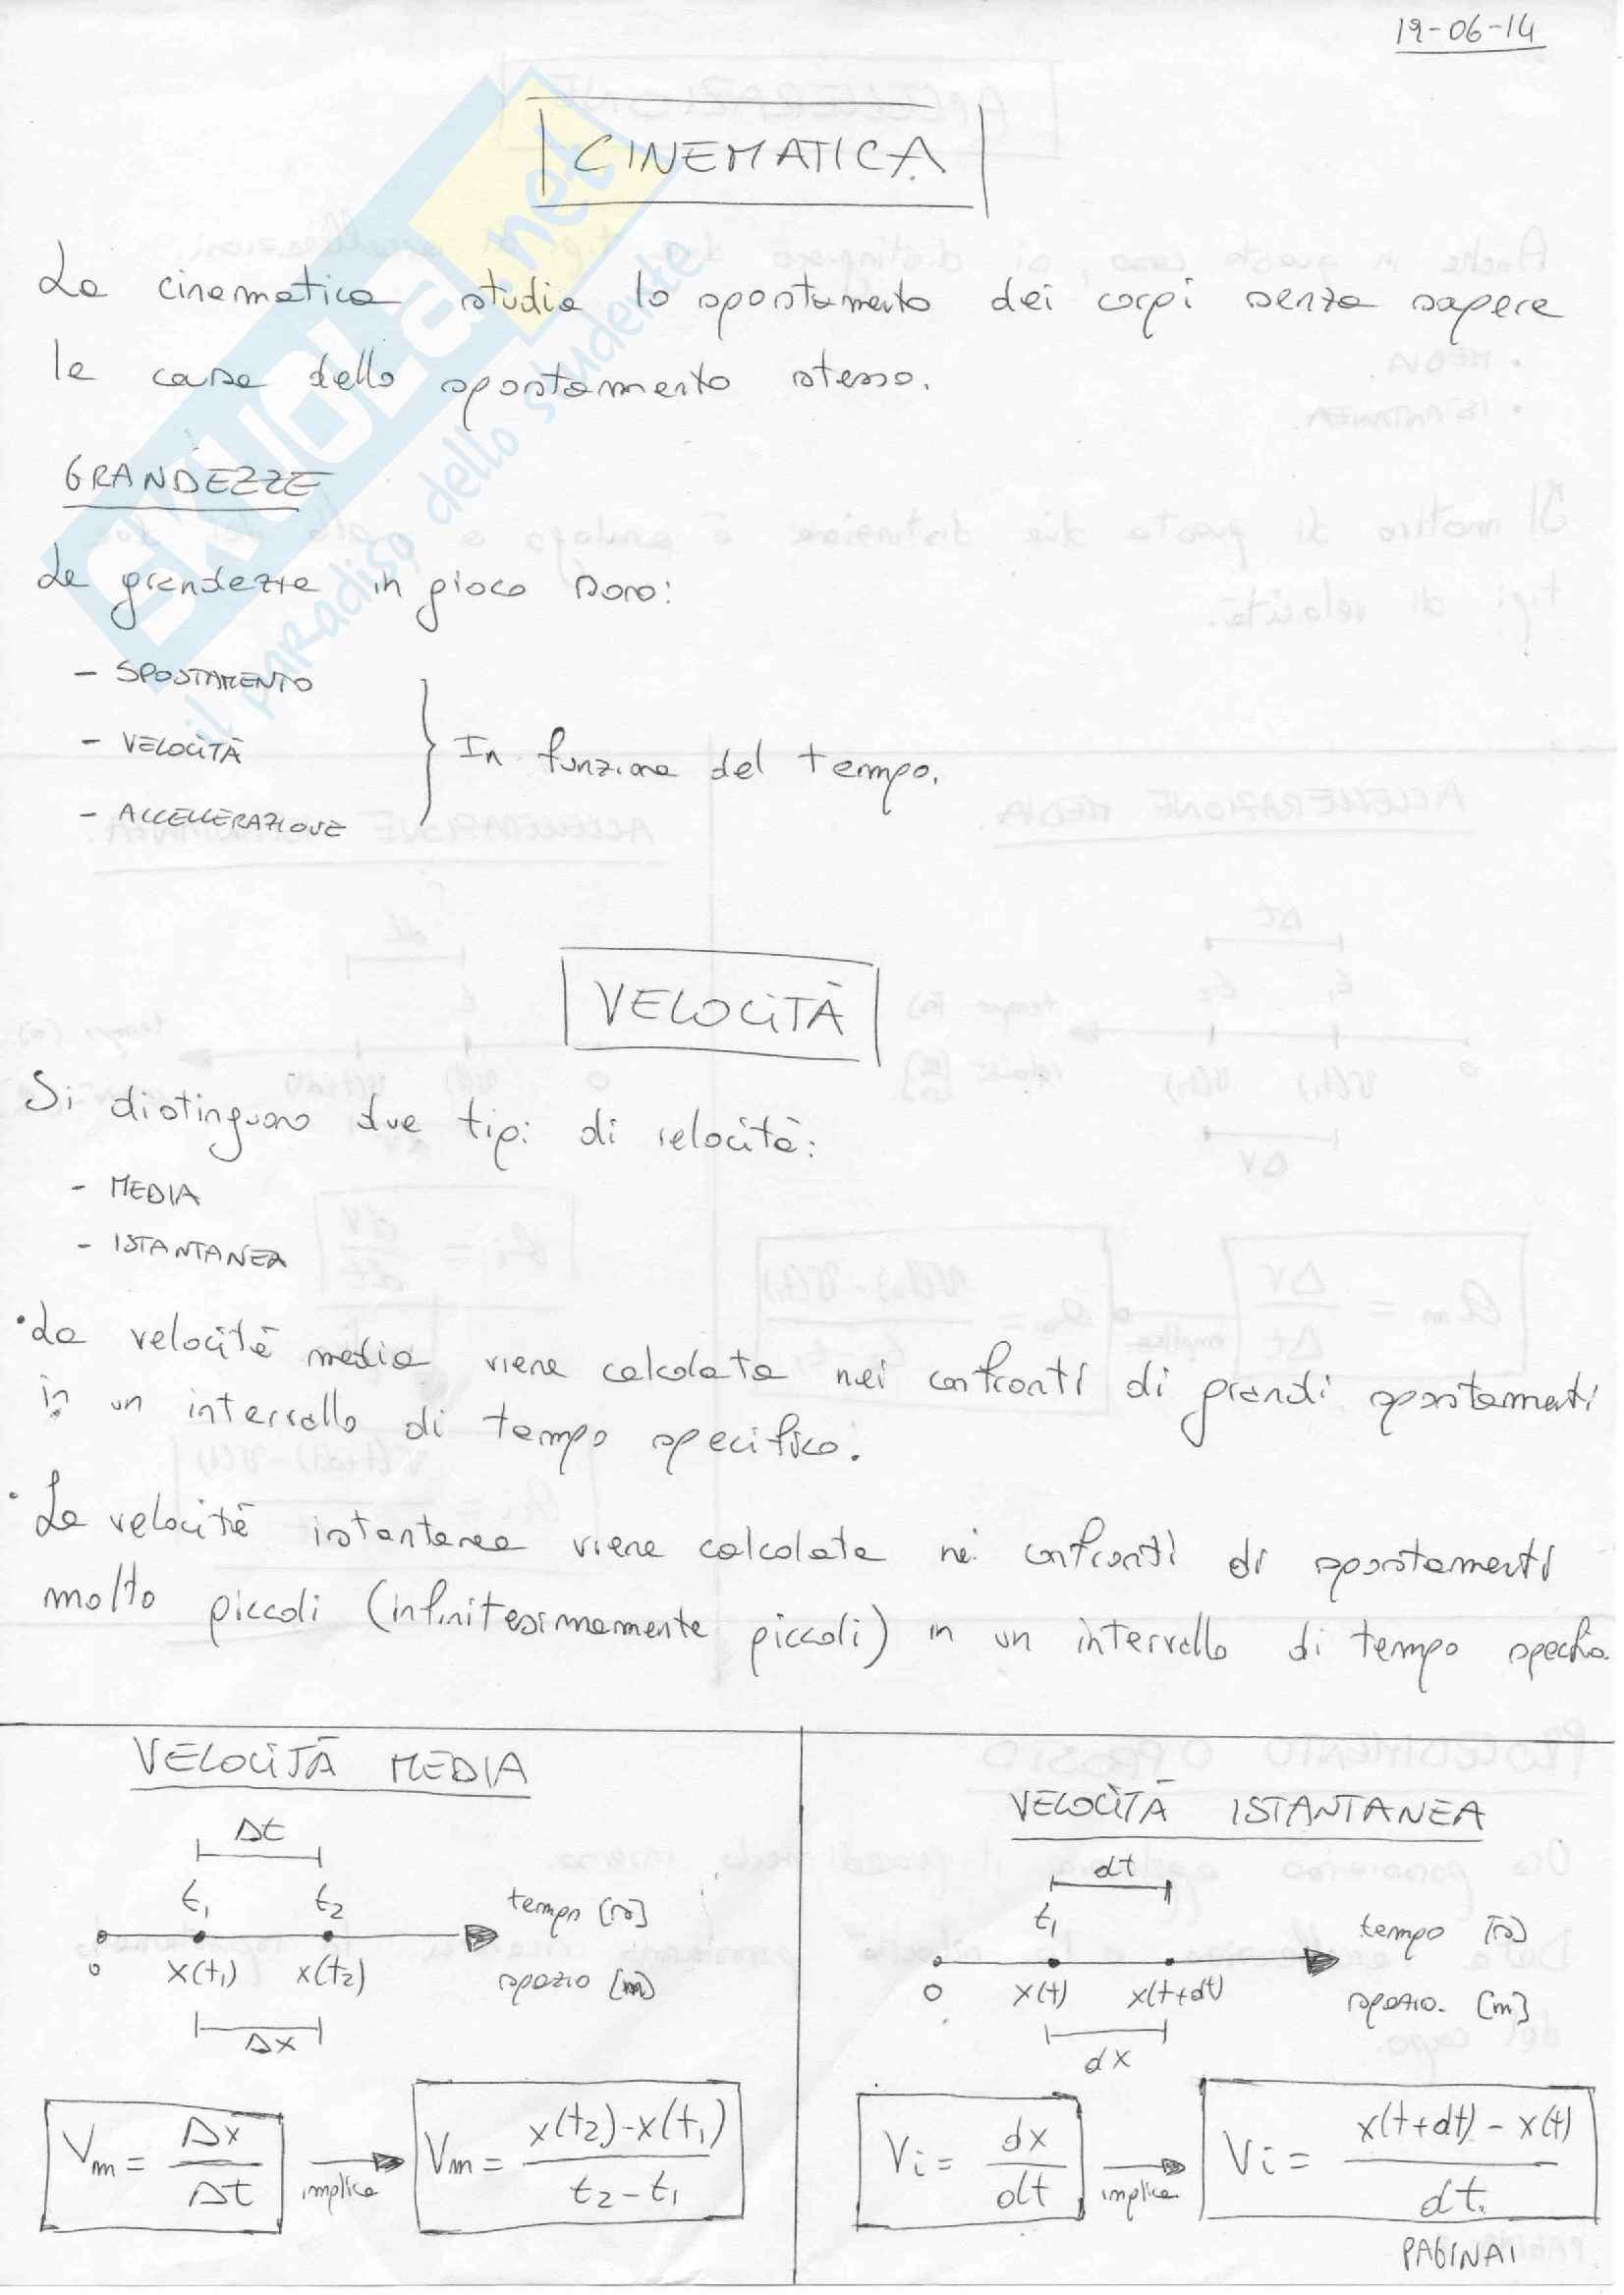 19-06-14
CINEMATICA
La cinematica studia lo spostamento dei corpi senza sapere
le cause dello spostamento stesso.
GRANDEZZE
Le grandezze in gioco sono:
- SPOSTAMENTO
- VELOCITÀ
- ACCELLERAZIONE
In funzione del tempo.
VELOCITÀ
Si distinguono due tipi di velocità:
- MEDIA
- ISTANTANEA
• La velocità media viene calcolata nei confronti di grandi spostamenti
in un intervallo di tempo specifico.
• La velocità istantanea viene calcolata nei confronti di spostamenti
molto piccoli (infinitesimamente piccoli) in un intervallo di tempo specifico.
VELOCITÀ MEDIA
Δt
t₁ t₂ tempo [s]
0 x(t₁) x(t₂) spazio [m]
Δx
Vm = Δx/Δt implica Vm = (x(t₂)-x(t₁))/(t₂-t₁)
VELOCITÀ ISTANTANEA
dt
t₁ tempo [s]
0 x(t) x(t+dt) spazio. [m]
dx
Vi = dx/dt implica Vi = (x(t+dt) - x(t))/dt
PAGINA 1
SKUOLA.net
il paradiso dello studente